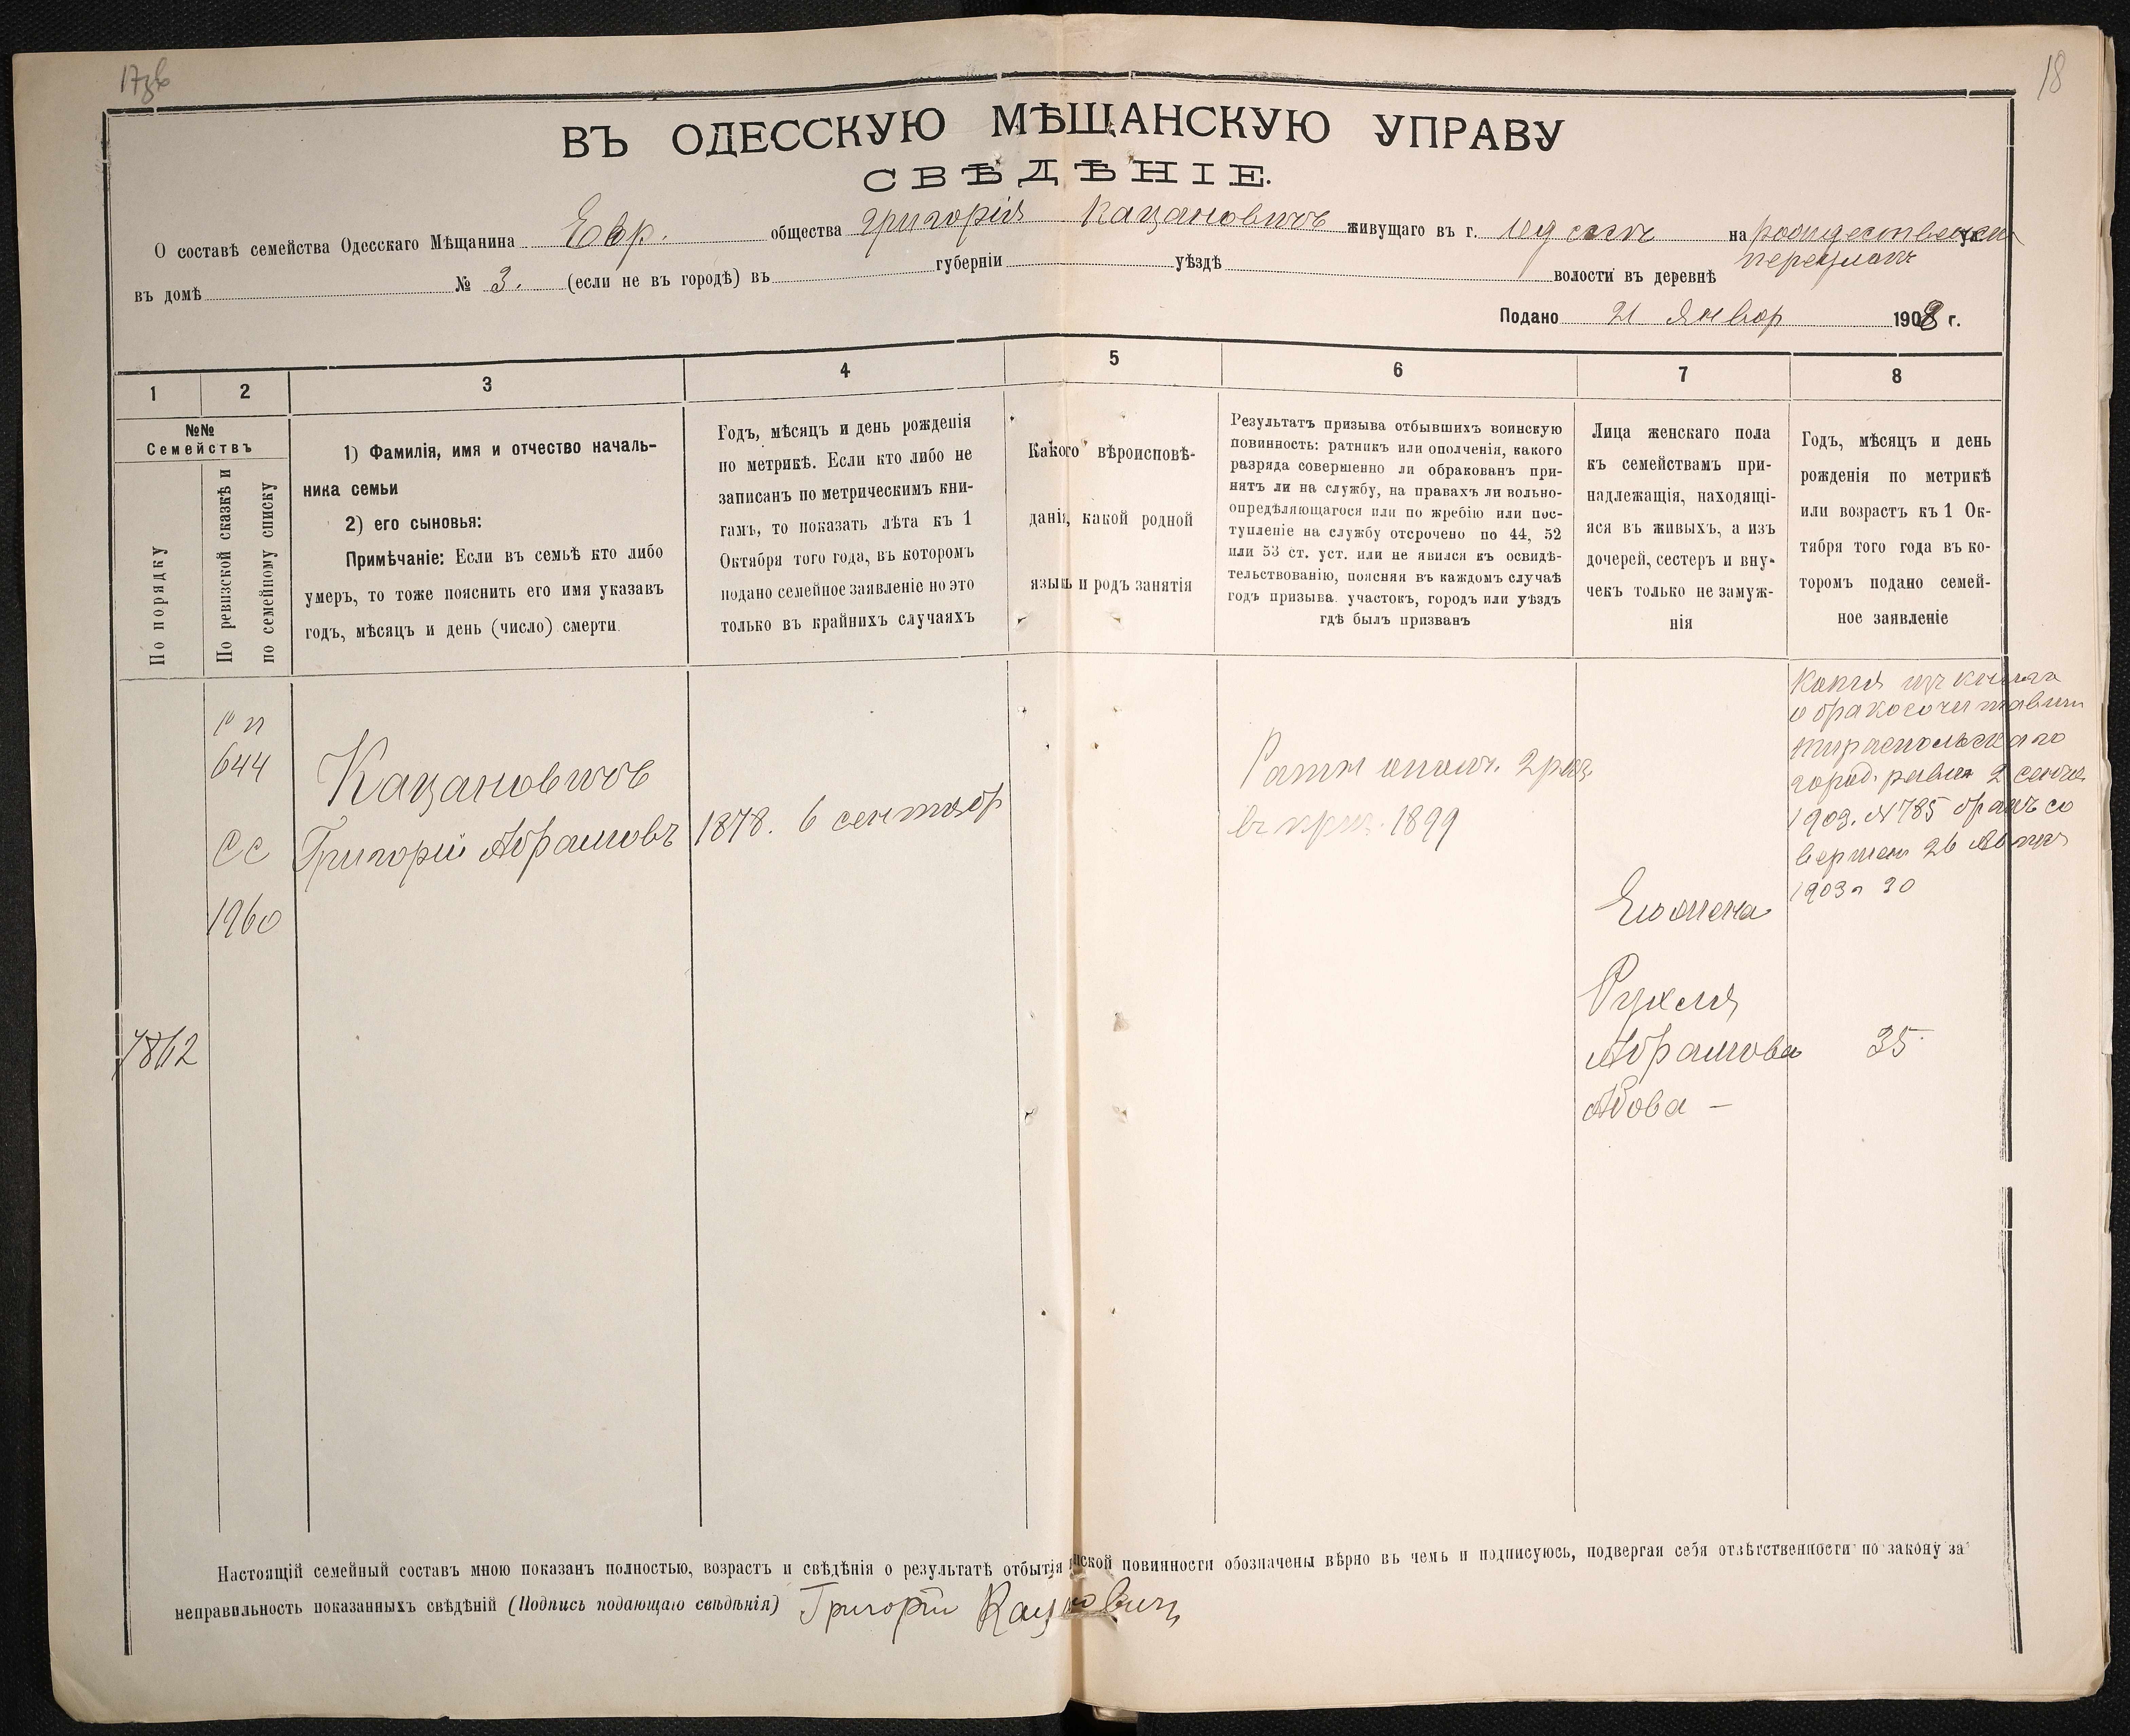 18
ВЪ ОДЕССКУЮ МѢЩАНСКУЮ УПРАВУ
СВѢДѢНІЕ.
О составѣ семейства Одесскаго Мѣщанина Евр. общества Григорія Кацановичъ живущаго въ г. Одессѣ на
въ домѣ № 3. (если не въ городѣ) въ губерніи уѣздѣ волости въ деревнѣ
Подано 21 Январ 1908 г.
1 2 3 4 5 6 7 8
№№
Семействъ
По порядку
По ревизской сказкѣ и
по семейному списку
1) Фамилія, имя и отчество началь-
ника семьи
2) его сыновья:
Примѣчаніе: Если въ семьѣ кто либо
умеръ, то тоже пояснить его имя указавъ
годъ, мѣсяцъ и день (число) смерти.
Годъ, мѣсяцъ и день рожденія
по метрикѣ. Если кто либо не
записанъ по метрическимъ кни-
гамъ, то показать лѣта къ 1
Октября того года, въ которомъ
подано семейное заявленіе но это
только въ крайнихъ случаяхъ
Какого вѣроисповѣ-
данія, какой родной
языкъ и родъ занятія
Результатъ призыва отбывшихъ воинскую
повинность: ратникъ или ополченія, какого
разряда совершенно ли обракованъ при-
нятъ ли на службу, на правахъ ли вольно-
опредѣляющагося или по жребію или пос-
тупленіе на службу отсрочено по 44, 52
или 53 ст. уст. или не явился къ освидѣ-
тельствованію, поясняя въ каждомъ случаѣ
годъ призыва. участокъ, городъ или уѣздъ
гдѣ былъ призванъ
Лица женскаго пола
къ семействамъ при-
надлежащія, находящі-
яся въ живыхъ, а изъ
дочерей, сестеръ и вну-
чекъ только не замуж-
нія
Годъ, мѣсяцъ и день
рожденія по метрикѣ
или возрастъ къ 1 Ок-
тября того года въ ко-
торомъ подано семей-
ное заявленіе
644
СС
1960
7862
Кацановичъ
Григорій Абрамовъ
1878. 6 сентябр
Ратн ополч. 2 раз.
въ приз. 1899
Его жена
Рухля
Абрамова
35
Копія изъ книги
о бракосочетавши
тираспольскаго
город. равин
1903. № 785 бракъ со
вершен 26 Авг
1903 г 30
Настоящій семейный составъ мною показанъ полностью, возрастъ и свѣдѣнія о результатѣ отбытія нской повинности обозначены вѣрно въ чемъ и подписуюсь, подвергая себя отвѣтственности по закону за
неправильность показанныхъ свѣдѣній (Подпись подающаго свѣдѣнія) Григорій Кацановичъ